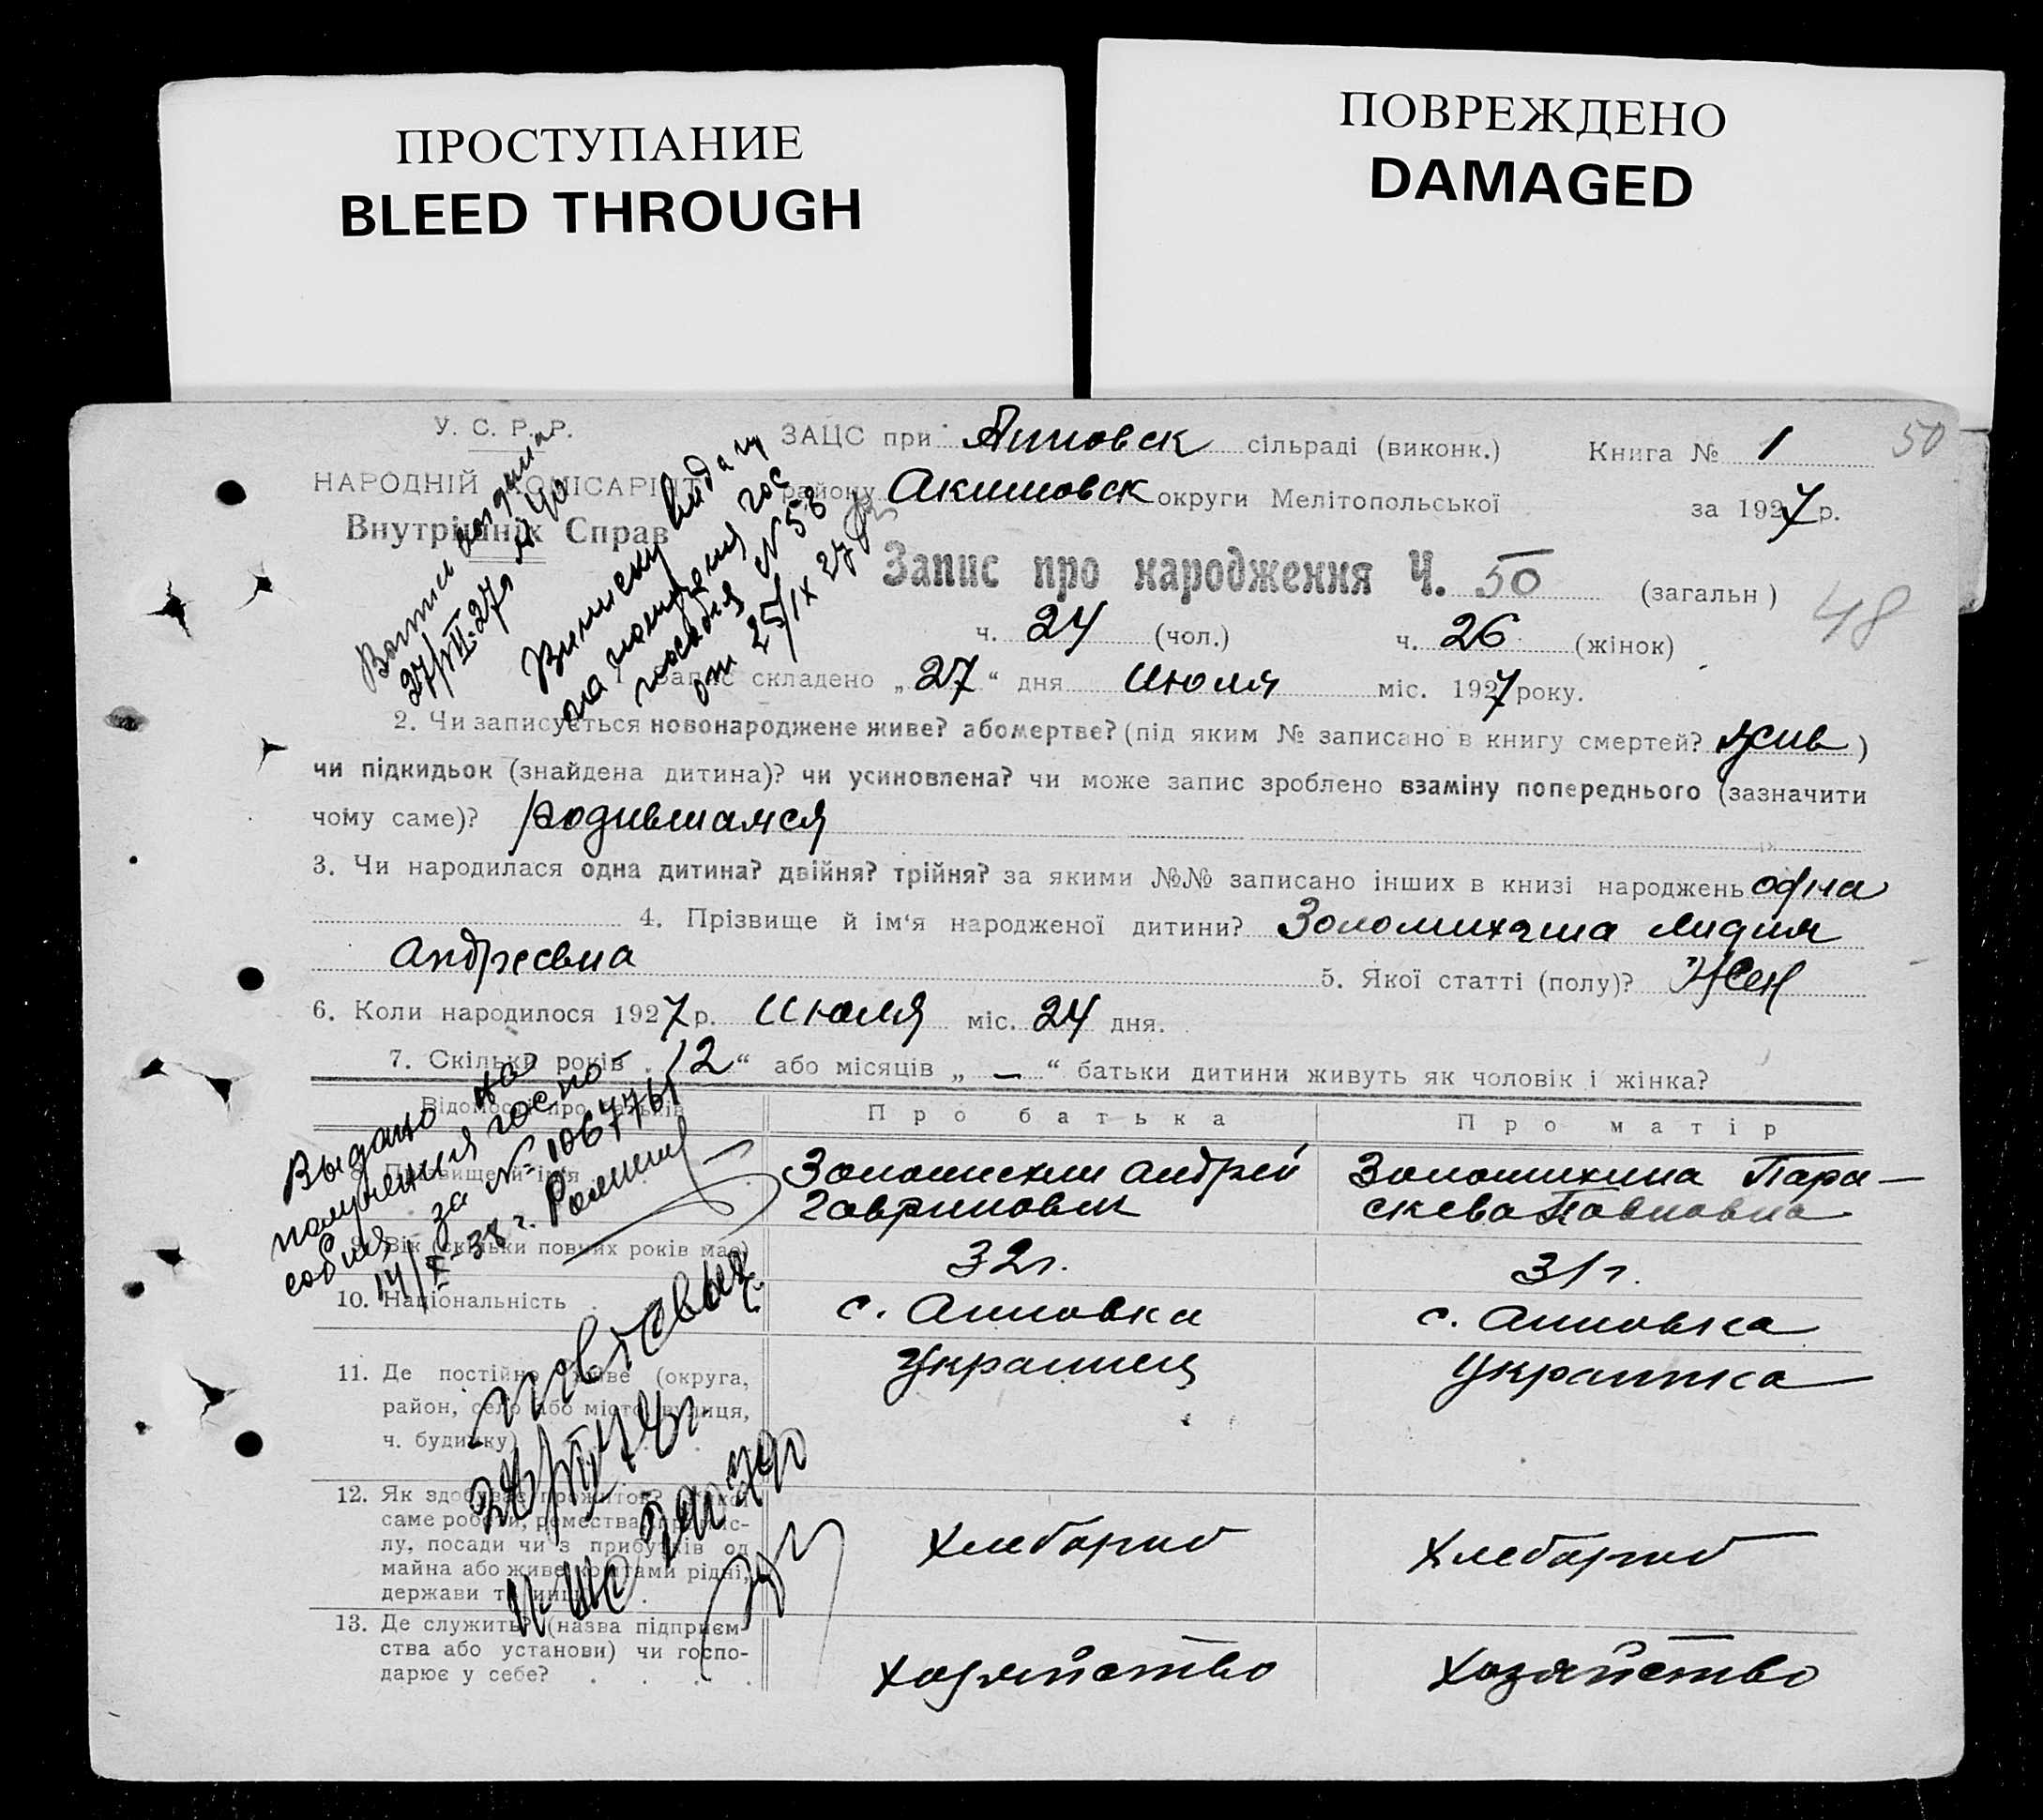 ПРОСТУПАНИЕ
BLEED THROUGH
ПОВРЕЖДЕНО
DAMAGED
У. С. Р. Р.
НАРОДНІЙ КОМІСАРІЯТ
Внутрішніх Справ
ЗАЦС при Анновск сільраді (виконк.) Книга № 1
50
району Акимовск округи Мелітопольської за 1927 р.
Запис про народження Ч. 50 (загальн)
48
ч. 24 (чол.) ч. 26 (жінок)
Запис складено „27“ дня Июля міс. 1927 року.
27/VII-27
Виписку видану
на получения гос
пособия № 58
от 25/IX 27
2. Чи записується новонароджене живе? або мертве? (під яким № записано в книгу смертей? жив)
чи підкидьок (знайдена дитина)? чи усиновлена? чи може запис зроблено взаміну попереднього (зазначити
чому саме)? родившамся
3. Чи народилася одна дитина? двійня? трійня? за якими №№ записано інших в книзі народжень одна
4. Прізвище й ім‘я народженої дитини? Золотихина Лидия
Андреевна
5. Якої статті (полу)? Жен
6. Коли народилося 1927 р. Июля міс. 24 дня.
7. Скільки років „12“ або місяців „—“ батьки дитини живуть як чоловік і жінка?
Відомості про батьків
Про батька
Про матір
Выдано на
получения госпо-
собия за № 1067761
14/X-38 г.
Прізвище й ім‘я
Золотихин Андрей
Гаврилович
Золотихина Пара-
скева Павловна
9. Вік (скільки повних років має)
32 г.
31 г.
10. Національність
с. Анновка
с. Анновка
11. Де постійно живе (округа,
район, село або місто, вулиця,
ч. будинку)
Украинец
Украинка
12. Як здобуває прожиток? Яка
саме робота, ремества, промис-
лу, посади чи з прибутків од
майна або живе коштами рідні,
держави та инш.
Хлебороб
Хлебороб
13. Де служить? (назва підприєм-
ства або установи) чи госпо-
дарює у себе?
хозяйство
хозяйство